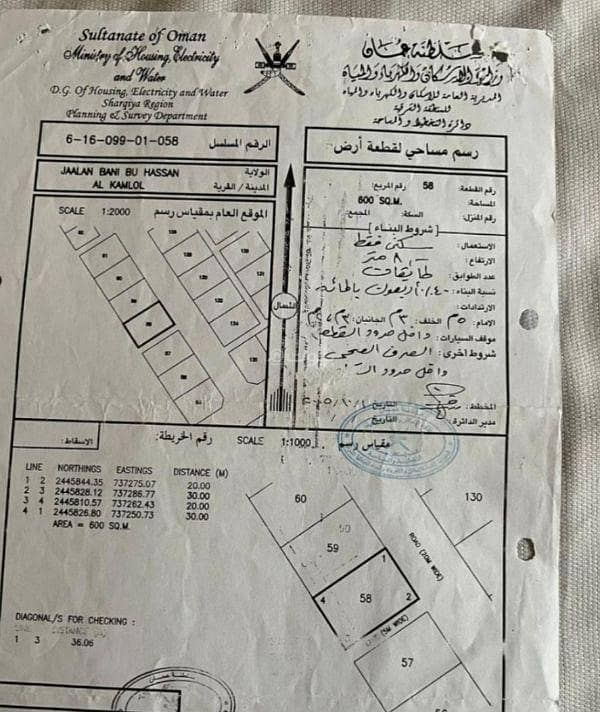 Sultanate of Oman
Ministry of Housing, Electricity
and Water
D.G. Of Housing, Electricity and Water
Sharqiya Region
Planning & Survey Department
سلطنة عمان
وزارة الإسكان والكهرباء والمياه
المديرية العامة للإسكان والكهرباء والمياه
للمنطقة الشرقية
دائرة التخطيط والمساحة
6-16-099-01-058 الرقم المسلسل
رسم مساحي لقطعة أرض
JAALAN BANI BU HASSAN الولاية
AL KAMLOL المدينة / القرية
SCALE 1:2000 الموقع العام بمقياس رسم
رقم القطعة: 58 رقم المربع:
المساحة: 600 SQ.M.
رقم المنزل: السكة: المجمع:
[ شروط البناء ]
الاستعمال: سكني فقط
الارتفاع: ٨ متر
عدد الطوابق: طابقان
نسبة البناء: ٤٠٪ أربعون بالمائة
الارتدادات:
الأمام: ٥م الخلف: ٣م الجانبان: ٣م، ٣م
موقف السيارات: داخل حدود القطعة
شروط أخرى: الصرف الصحي
داخل حدود
المخطط: التاريخ
مدير الدائرة: التاريخ
الشمال
130
131
134
57
58
الاسقاط: رقم الخريطة: SCALE 1:1000 مقياس رسم
LINE NORTHINGS EASTINGS DISTANCE (M)
1 2 2445844.35 737275.07 20.00
2 3 2445828.12 737286.77 30.00
3 4 2445810.57 737262.43 20.00
4 1 2445826.80 737250.73 30.00
AREA = 600 SQ.M.
60
130
59
ROAD (20M WIDE)
1
4 58 2
(5M WIDE)
57
DIAGONAL/S FOR CHECKING :
LINE DISTANCE (M)
1 3 36.06